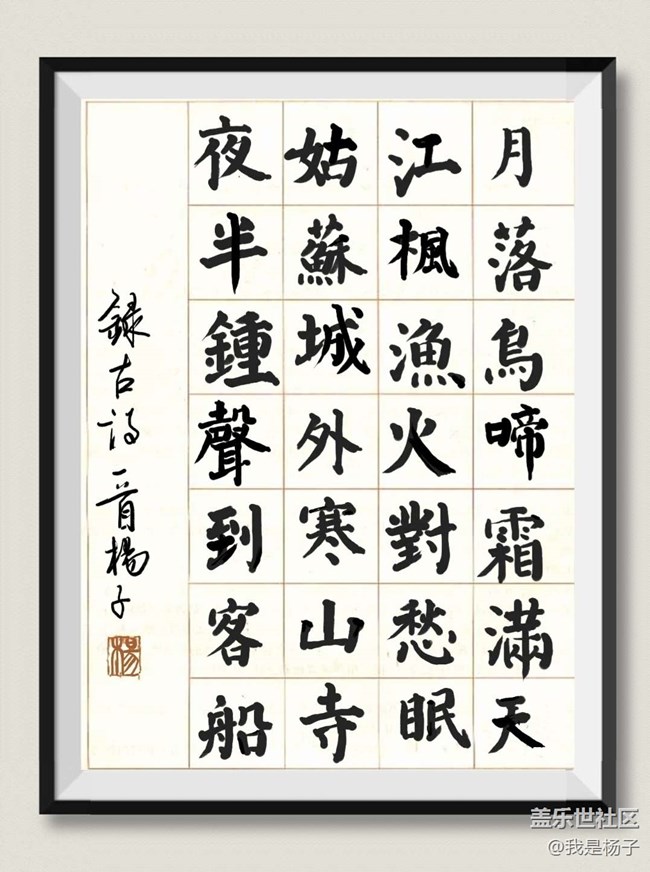 月落烏啼霜滿天
江楓漁火對愁眠
姑蘇城外寒山寺
夜半鍾聲到客船
録古詩一首楊子
楊
盖乐世社区
@我是杨子